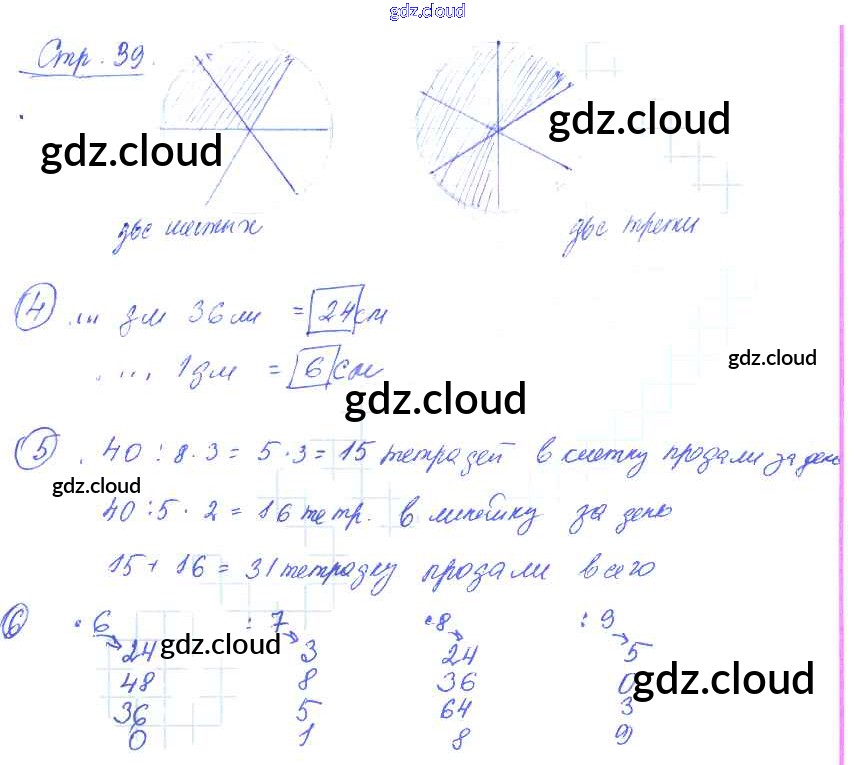 gdz.cloud
Стр. 39.
gdz.cloud
gdz.cloud
две шестых
две трети
④ ... дм 36 мм = 24 см
gdz.cloud
.... 1 дм = 6 см
gdz.cloud
⑤ 40 : 8 · 3 = 5 · 3 = 15 тетрадей в клетку продали за день
gdz.cloud
40 : 5 · 2 = 16 тетр. в линейку за день
15 + 16 = 31 тетрадку продали всего
⑥ · 6 : 7 · 8 : 9
24 3 24 5
gdz.cloud
48 8 36 0
gdz.cloud
36 5 64 3
0 1 8 9